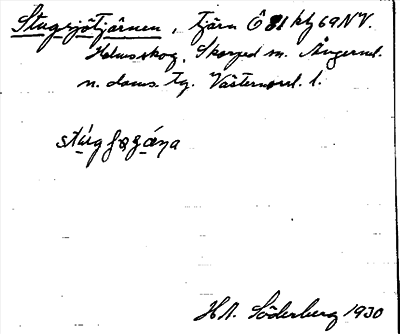 Stugsjötjärnen, tjärn Ö 81 kbl 69 NV.
Holmskog, Skorped sn. Ångerml.
n. doms. tg. Västernorrl. l.
H. Söderberg 1930